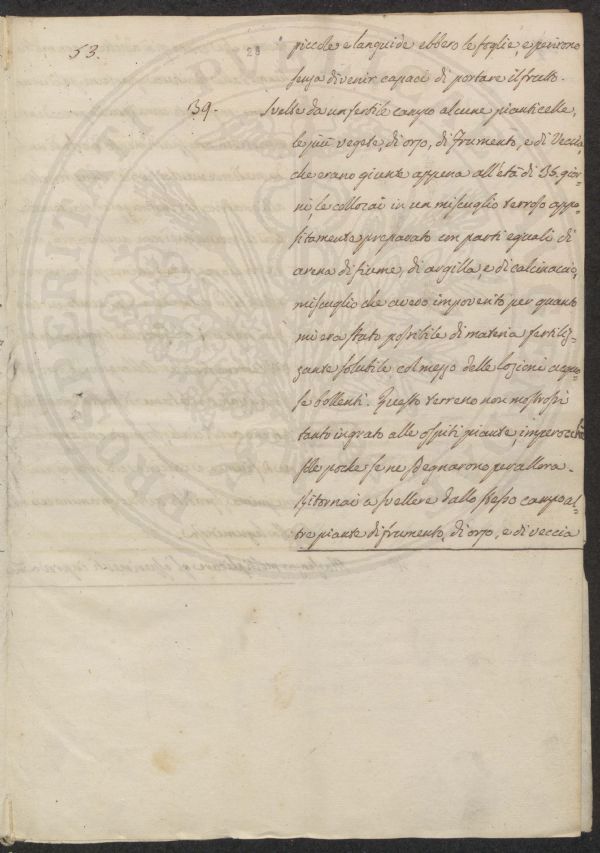 53.
28
piccole e languide ebbero le foglie, e perirono
senza divenir capaci di portare il frutto.
39.
Svelte da un fertile campo alcune pianticelle,
le più vegete, di orzo, di frumento, e di Veccia,
che erano giunte appena all'età di 35. gior=
ni, le collocai in un miscuglio terroso appo=
sitamente preparato con parti eguali di
arena di fiume, di argilla, e di calcinaccio,
miscuglio che avevo impoverito per quanto
mi era stato possibile di materia fertiliz=
zante solubile col mezzo delle lozioni acquo=
se bollenti. Questo terreno non mostrossi
tanto ingrato alle ospiti piante, imperocchè
sole poche se ne sdegnarono per allora.
Ritornai a svellere dallo stesso campo al=
tre piante di frumento, di orzo, e di veccia